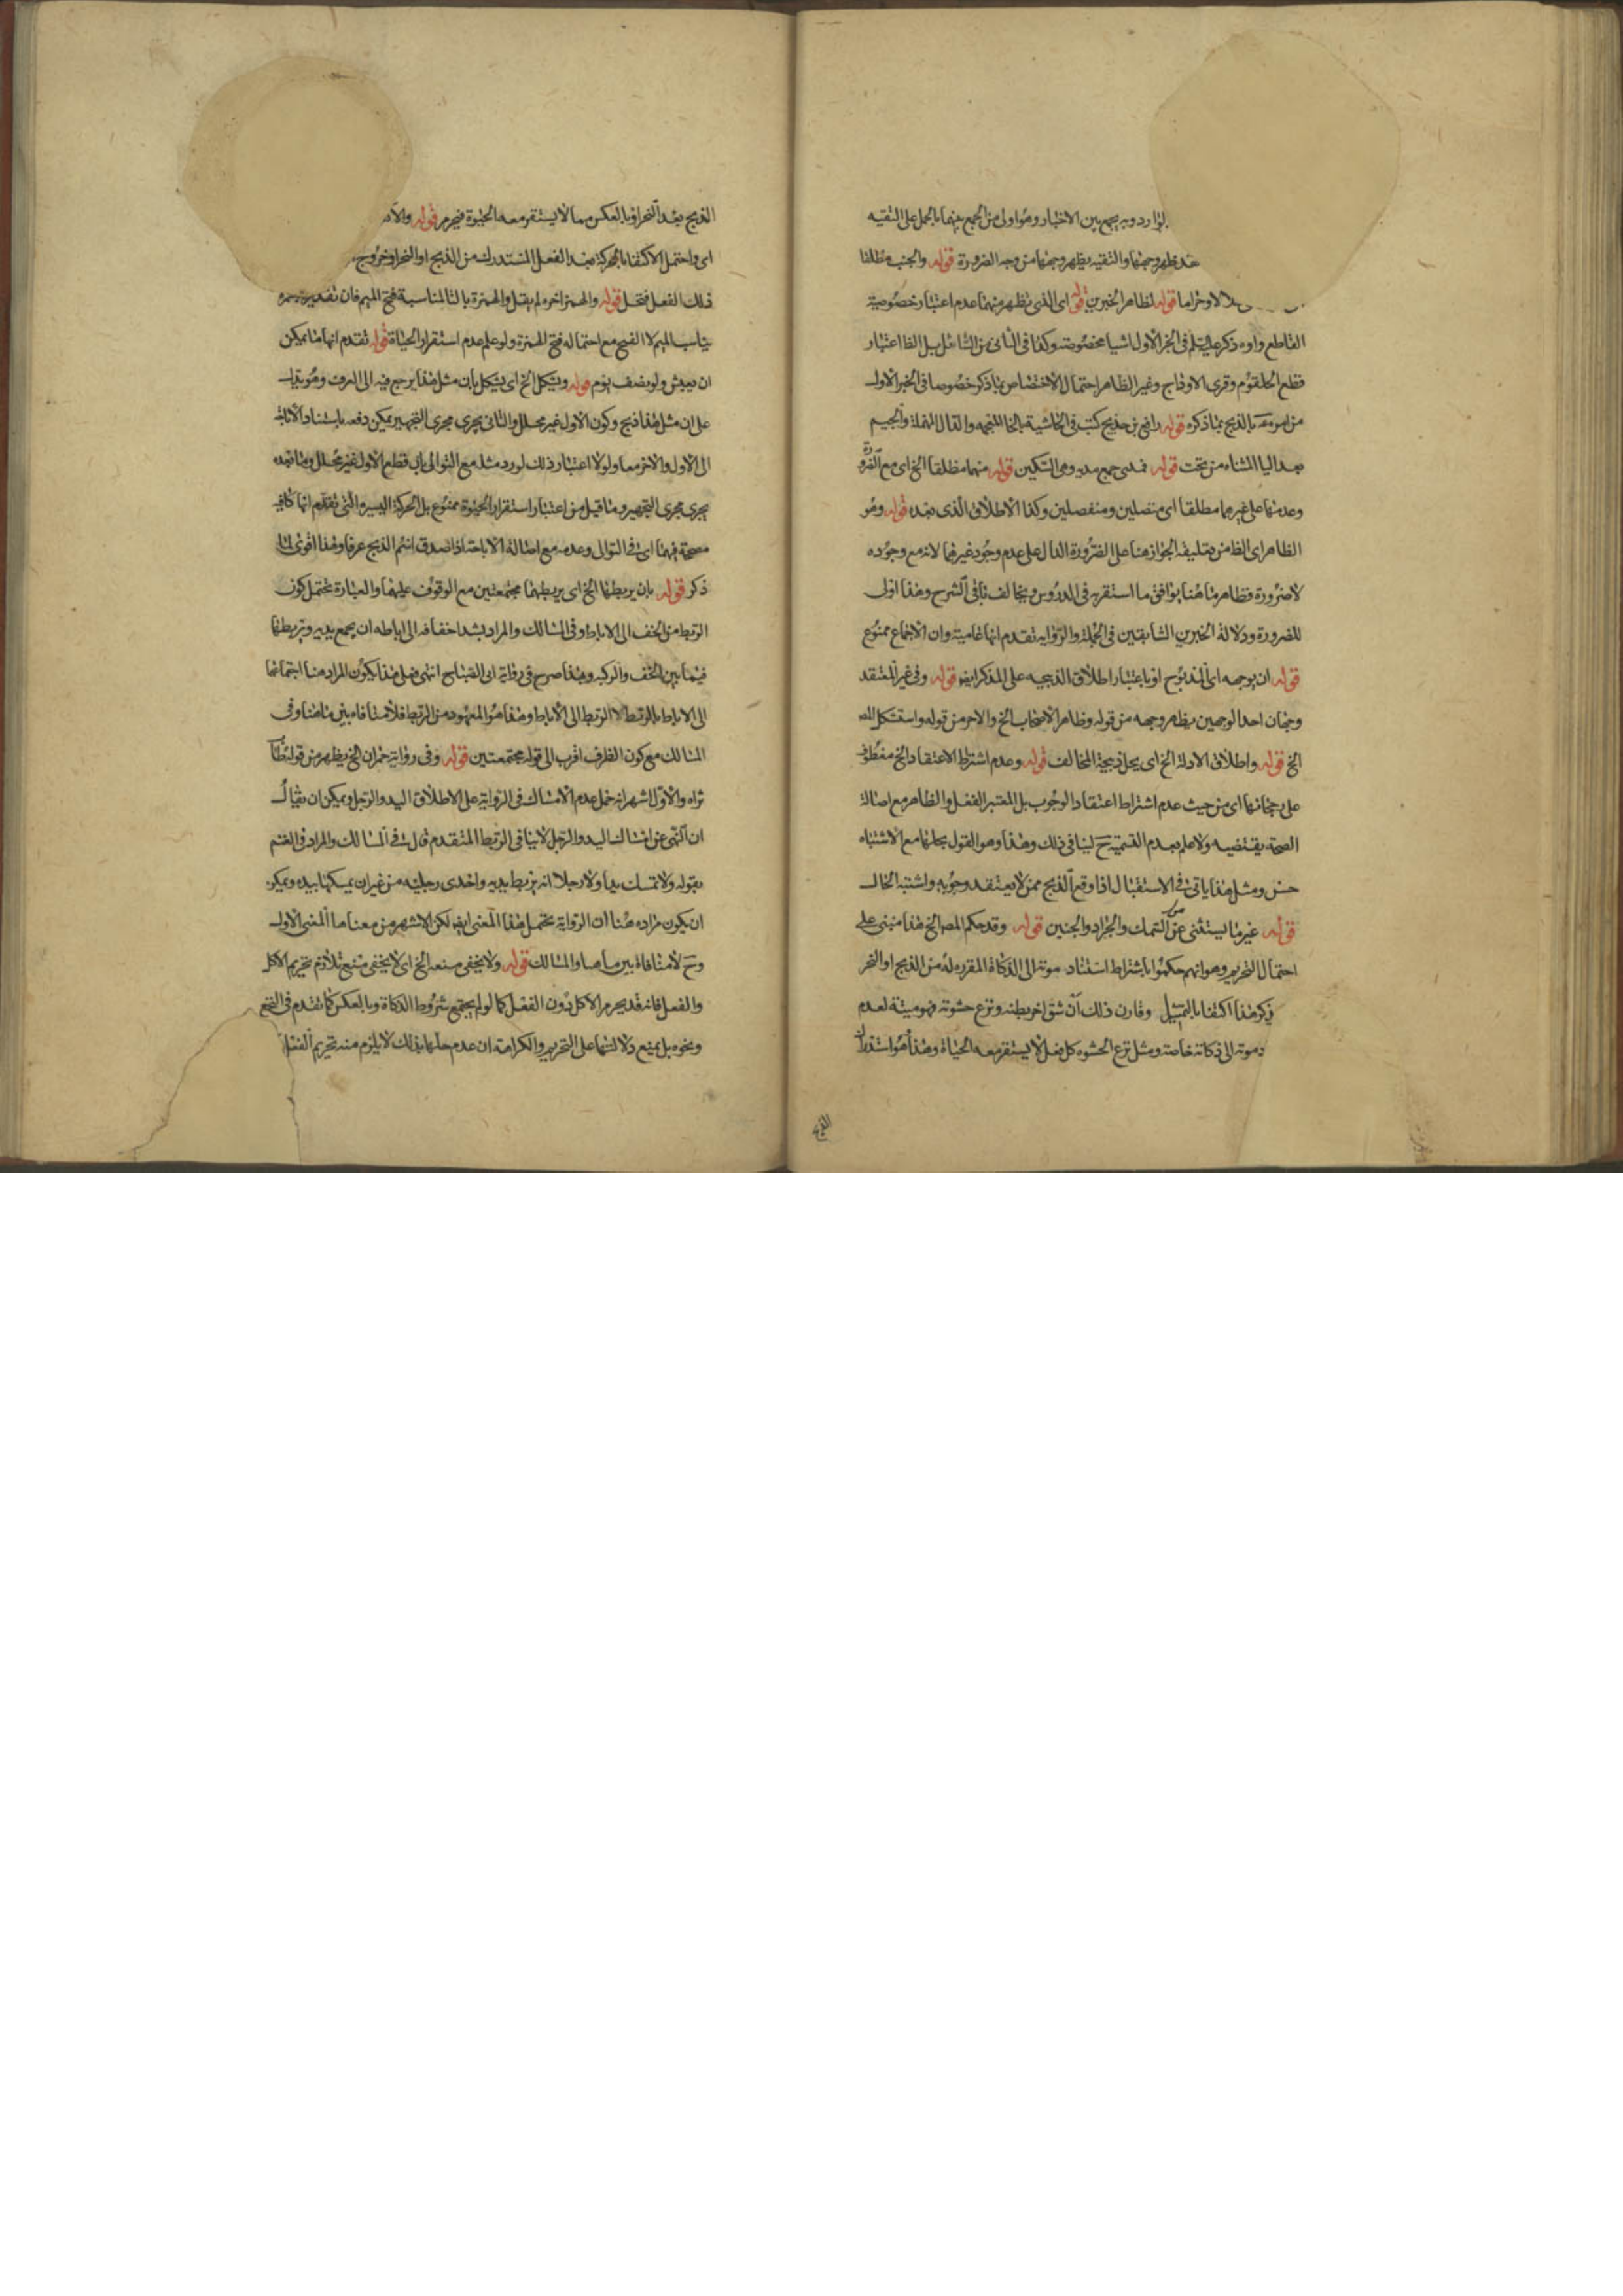 لوارد وبه يجمع بين الاخبار وهو اولى من الجمع بينها بالحمل على التقيه
قد ظهر وجهها والتقيه يظهر وجهها من وجه الضرورة قوله والجنب مطلقا
حلالا وحراما قوله لظاهر الخبرين قوله اى الذى يظهر منهما عدم اعتبار خصوصية
القاطع واوه ذكر عليه السلم فى الخبر الاول اشيا مخصوصة وكذا فى الثانى عن السائل بل الظا اعتبار
قطع الحلقوم وفرى الاوداج وغير الظاهر احتمال الاختصاص بما ذكر خصوصا فى الخبر الاول
بالذبح بما ذكره قوله رافع بن خديج كتب فى الحاشية بالخا المعجمه والدال المهملة والجيم
بعد اليا المثناه من تحت قوله فمدى جمع مديه وهى السكين قوله منهما مطلقا الخ اى مع الضرورة
وعدمها على غيرهما مطلقا اى متصلين ومنفصلين وكذا الاطلاق الذى بعده قوله وهو
الظاهر اى الظا من تعليقه الجواز هنا على الضرورة الدال على عدم وجود غيرهما لانه مع وجوده
لا ضرورة وظاهر ما هنا يوافق ما استقربه فى الدروس ويخالف باقى الشرح وهذا اولى
للضرورة ودلالة الخبرين السابقين فى الجملة والرواية تقدم انها عامية وان الاجماع ممنوع
قوله ان يوجهه اى المذبوح او باعتبار اطلاق الذبيحه على المذكر ايض قوله وفى غير المعتقد
وجهان احد الوجهين يظهر وجهه من قوله وظاهر الاصحاب الخ والاخر من قوله واستشكل المص
الخ قوله واطلاق الادلة الخ اى يحل ذبيحة المخالف قوله وعدم اشتراط الاعتقاد الخ معطوف
على رجحانها اى من حيث عدم اشتراط اعتقاد الوجوب بل المعتبر الفعل والظاهر مع اصالة
الصحة يقتضيه ولا علم بعدم التسمية ح لينافى ذلك وهذا وهو القول بحلها مع الاشتباه
حسن ومثل هذا ياتى فى الاستقبال اذا وقع الذبح ممن لا يعتقد وجوبه واشتبه الحال
قوله غير ما يستثنى من السمك والجراد والجنين قوله وقد حكم المص الخ هذا مبنى على
احتمال التحريم وهو انهم حكموا باشتراط استناد موته الى الذكاة المقرره له من الذبح او النحر
ذكر هذا اكتفا بالتمثيل وقارن ذلك ان شق اخر بطنه ونزع حشوته فهو ميتة لعدم
موته الى ذكاته خاصة ومثل نزع الحشوه كل فعل لا يستقر معه الحياة وهذا هو استدراك
الذبح
الذبح بعد النحر او بالعكس مما لا يستقر معه الحيوة فيحرم قوله
اى واحتمل الاكتفا بالحركة بعد الفعل المستدرك من الذبح او النحر او خروج
ذلك الفعل فتحل قوله والهمز اخره لم يقل والهمزة بالتا لمناسبة فتح الميم فان تقدير
يناسب الميم لا الفتح مع احتماله فتح الهمزة ولو علم عدم استقرار الحياة قوله تقدم انها ما يمكن
ان يعيش ولو نصف يوم قوله ويشكل الخ اى يشكل بان مثل هذا يرجع فيه الى العرف وهو يدل
على ان مثل هذا ذبح وكون الاول غير محلل والثانى يجرى مجرى التجهيز يمكن دفعه باستناد الاباحة
الى الاول والاخر معا ولولا اعتبار ذلك لورد مثله مع التوالى بان قطع الاول غير محلل وما بعده
يجرى مجرى التجهيز وما قيل من اعتبار استقرار الحيوة ممنوع بل الحركة اليسيره التى تقدم انها كافيه
مصححة فيهما اى فى التوالى وعدمه مع اصالة الاباحة اذا صدق اسم الذبح عرفا وهذا اقوى لما
ذكر قوله بان يربطها الخ اى يربطهما مجتمعتين مع الوقوف عليهما والعبارة تحتمل كون
الربط من الخف الى الاباط وفى المسالك والمراد بشد اخفافه الى اباطه ان يجمع يديه ويربطها
فيما بين الخف والركبه وبهذا صرح فى رواية ابى الصباح انتهى فعلى هذا يكون المراد هنا اجتماعها
الى الاباط بالربط لا الربط الى الاباط وهذا هو المعهود من الربط فلا منافاه بين ما هنا وفى
المسالك مع كون الظرف اقرب الى قوله مجتمعتين قوله وفى رواية حمران الخ يظهر من قوله طاب
ثراه والاول اشهر انه حمل عدم الامساك فى الرواية على الاطلاق اليد والرجل ويمكن ان يقال
ان النهى عن امساك اليد والرجل لا ينافى الربط المتقدم قال فى المسالك والمراد فى الغنم
بقوله ولا تمسك يدا ولا رجلا انه يربط يديه واحدى رجليه من غير ان يمسكها بيده ويمكن
ان يكون مراده هنا ان الرواية تحتمل هذا المعنى ايض لكن الاشهر من معناها المعنى الاول
وح لا منافاة بين ما هنا والمسالك قوله ولا يخفى منعه الخ اى لا يخفى منع تلازم تحريم الاكل
والفعل فانه قد يحرم الاكل دون الفعل كما لو لم يجتمع شروط الذكاة وبالعكس كما تقدم فى النخع
ونحوه بل يمنع دلالتها على التحريم والكراهة ان عدم حلها بذلك لا يلزم منه تحريم الفعل